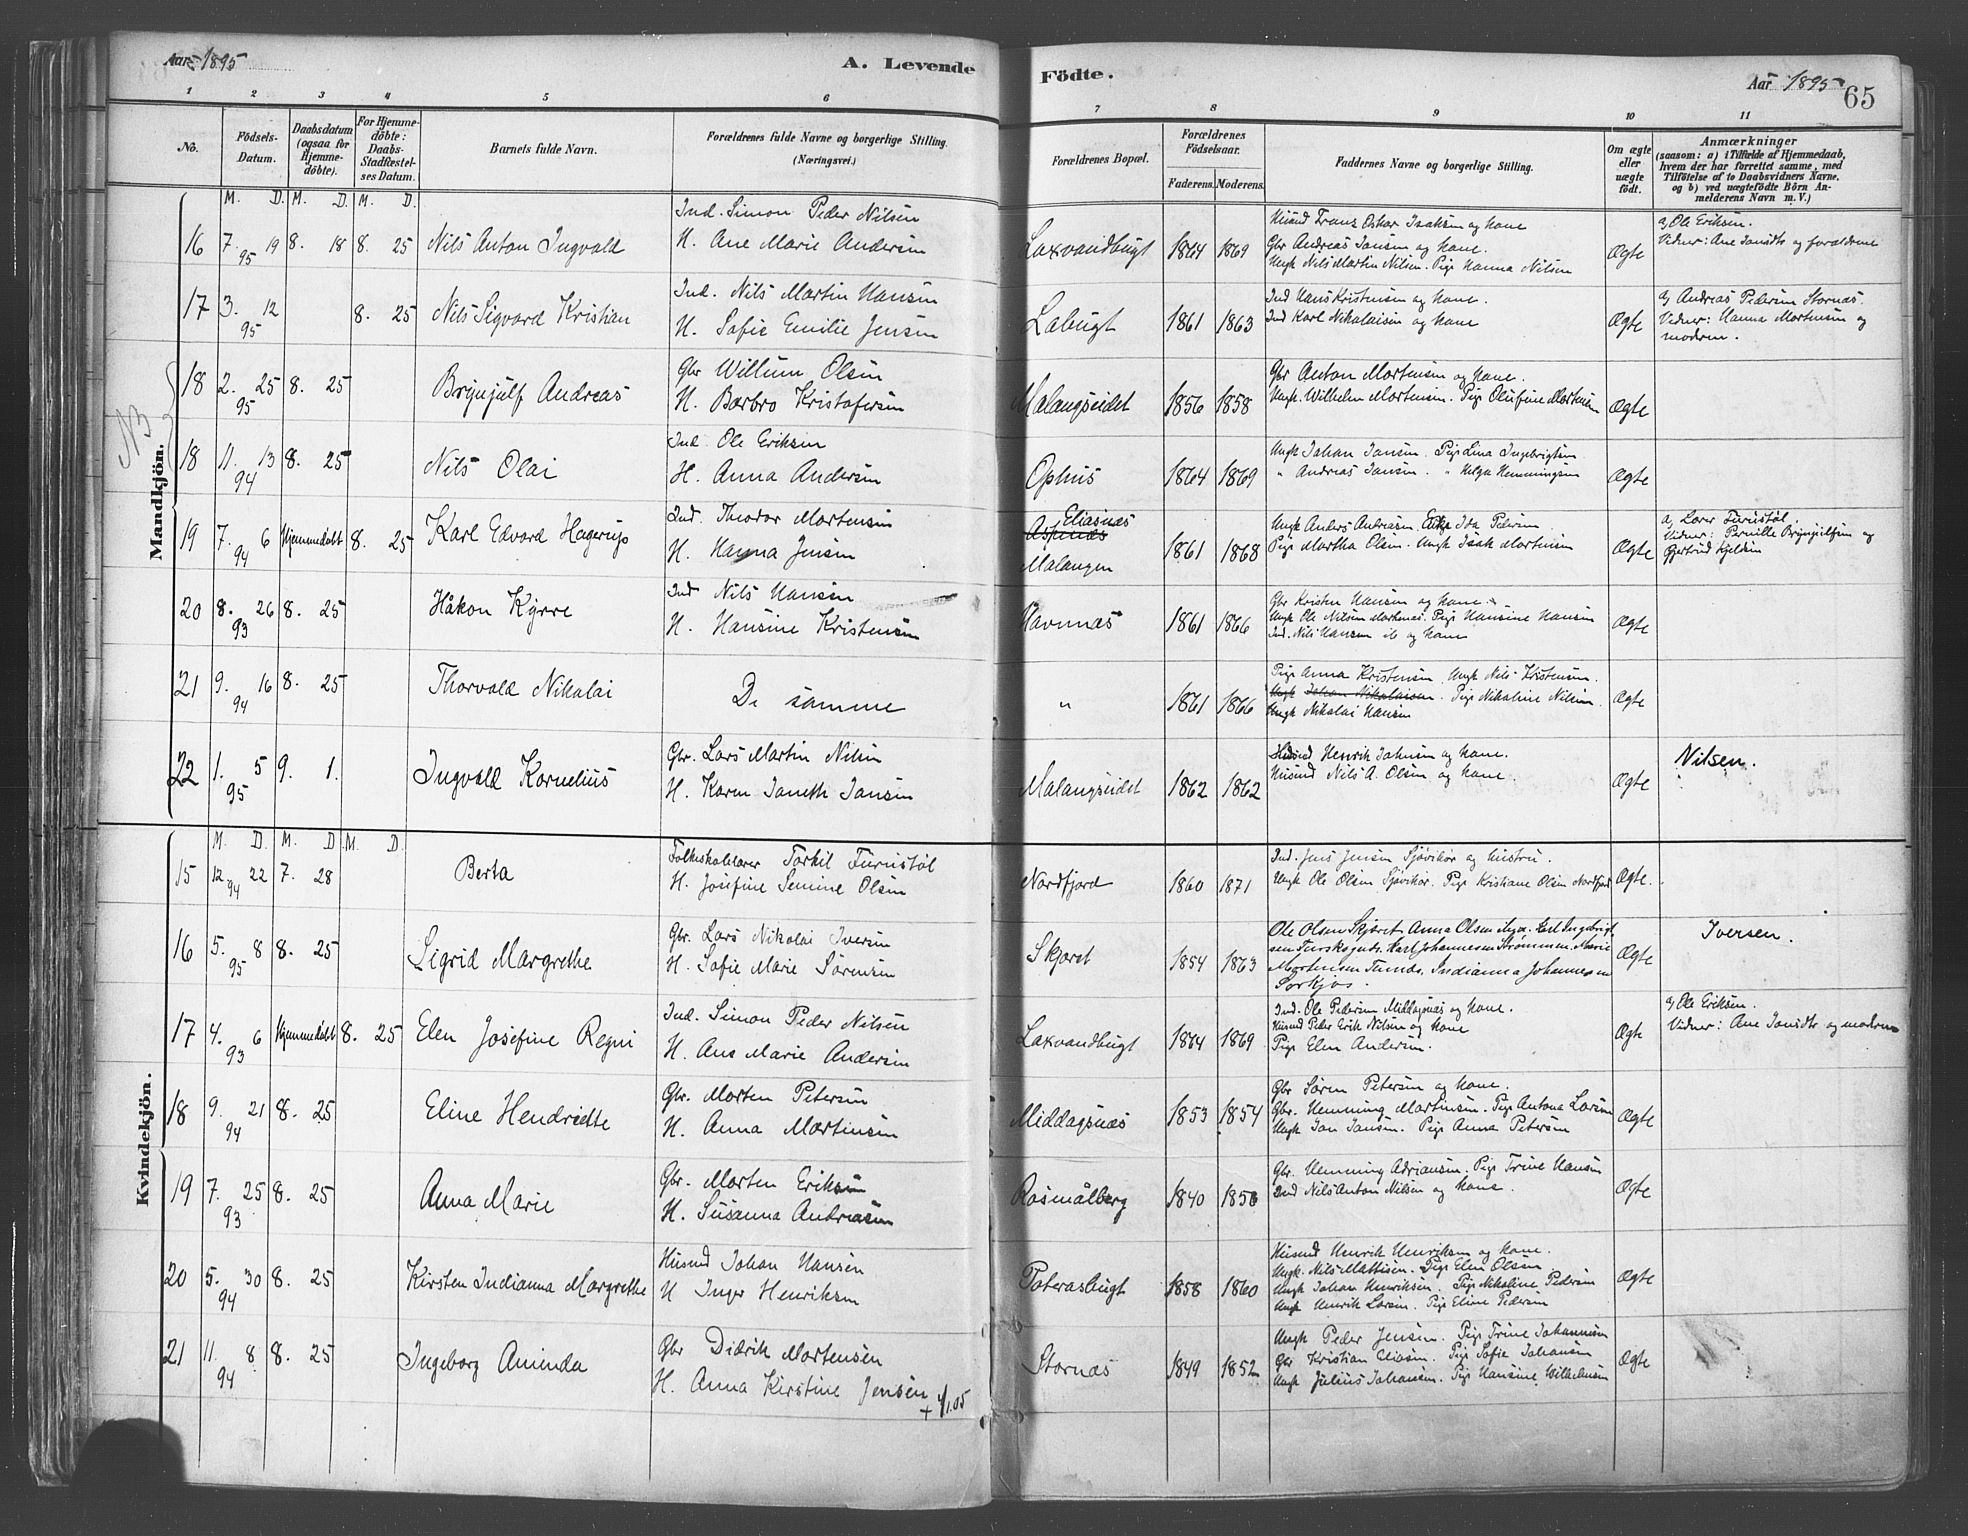 Aar 1895
A. Levende
Födte.
Aar 1895
65
1 2 3 4 5 6 7 8 9 10 11
No.
Födsels-Datum.
Daabsdatum (ogsaa for Hjemme-döbte).
For Hjemme-döbte: Daabs-Stadfæstel-ses Datum.
Barnets fulde Navn.
Forældrenes fulde Navne og borgerlige Stilling.
(Næringsvei.)
Forældrenes Bopæl.
Forældrenes Födselsaar.
Faderens. Moderens.
Faddernes Navne og borgerlige Stilling.
Om ægte eller uægte födt.
Anmærkninger
(saasom: a) i Tilfælde af Hjemmedaab,
hvem der har forrettet samme, med
Tilföielse af to Daabsvidners Navne,
og b) ved uægtefödte Börn An-
melderens Navn m. V.)
Mandkjön.
M. D. M. D. M. D.
16 7. 19 95 8. 18 8. 25 Nils Anton Ingvald
Ind. Simon Peder Nilsen
H. Ane Marie Andersen
Laxvandbugt 1864 1869
Husmd Frans Oskar Isaksen og kone
Gbr Andreas Jansen og kone.
Ungk Nils Martin Nilsen. Pige Hanna Nilsen
Ægte
a) Ole Eriksen.
Vidner: Ane Jansdtr og forældrene
17 3. 12 95 8. 25 Nils Sigvard Kristian
Ind. Nils Martin Hansen
H. Sofie Emilie Jensen
Labugt 1861 1863
Ind Hans Kristensen og kone.
Ind Karl Nikolaisen og kone
Ægte
a) Andreas Pedersen Stornæs.
Vidner: Hanna Mortensen og
modren.
NB
18 2. 25 95 8. 25 Brynjulf Andreas
Gbr Willum Olsen
H. Barbro Kristofersen
Malangseidet 1856 1858
Gbr Anton Mortensen og kone.
Ungk. Wilhelm Mortensen. Pige Olufine Mortensen
Ægte
18 11. 13 94 8. 25 Nils Olai
Ind. Ole Eriksen
H. Anna Andersen
Ophus 1864 1869
Ungk Johan Jansen. Pige Lina Ingebrigtsen
" Andreas Jansen. " Helga Hemmingsen
Ægte
19 7. 6 94 Hjemmedøbt 8. 25 Karl Edvard Hagerup
Ind. Theodor Mortensen
H. Hanna Jensen
Eliasnæs
Aspenæs
Malangen 1861 1868
Ungk Anders Andreasen. Enke Ida Pedersen
Pige Martha Olsen. Ungk Isak Mortensen
Ægte
a) Lærer Furustøl.
Vidner: Pernille Brynjulfsen og
Gjertrud Kjeldsen
20 8. 26 93 8. 25 Håkon Kyrre
Ind Nils Hansen
H. Hansine Kristensen
Havnnæs 1861 1866
Gbr Kristen Hansen og kone.
Ungk Ole Nilsen Mortenæs. Pige Hansine Hansen
Ind. Nils Hansen ib og kone
Ægte
21 9. 16 94 8. 25 Thorvald Nikolai
De samme
" 1861 1866
Pige Anna Kristensen. Ungk Nils Kristensen.
Ungk Johan Nikolaisen. Pige Nikoline Nilsen.
Ungk Nikolai Hansen
Ægte
22 1. 5 95 9. 1. Ingvald Kornelius
Gbr. Lars Martin Nilsen
H. Karen Janetth Jansen
Malangseidet 1862 1862
Husmd Henrik Johnsen og kone.
Husmd Nils A. Olsen og kone.
Ægte
Nilsen.
Kvindekjön.
M. D. M. D. M. D.
15 12. 22 94 7. 28 Berta
Folkeskolelærer Torkil Furustøl
H. Josefine Semine Olsen
Nordfjord 1860 1871
Ind. Jens Jensen Sjøvikor og hustru.
Ungk Ole Olsen Sjøvikor. Pige Kristiane Olsen Nordfjord
Ægte.
16 5. 8 95 8. 25 Sigrid Margrethe
Gbr. Lars Nikolai Iversen
H. Sofie Marie Sørensen
Skjæret 1854 1863
Ole Olsen Skjæret Anna Olsen Karl Ingebrigt-
sen Karl Johannesen Strømmen. Marie
Mortensen Indianna Johannesen
Sørkjos.
Ægte
Iversen.
17 4. 6 93 Hjemmedøbt 8. 25 Elen Josefine Regni
Ind. Simon Peder Nilsen
H. Ane Marie Andersen
Laxvandbugt 1864 1869
Ind. Ole Pedersen Middagsnæs og kone.
Husmd Peder Erik Nilsen og kone
Pige Elen Andersen.
Ægte
a) Ole Eriksen.
Vidner: Ane Jansdtr og modren
18 9. 21 94 8. 25 Eline Hendriette
Gbr. Morten Petersen
H. Anna Mortensen
Middagsnæs 1853 1854
Gbr Søren Petersen og kone.
Gbr. Hemming Mortensen. Pige Antona Larsen
Ungk Jan Jansen. Pige Anna Petersen
Ægte
19 7. 25 93 8. 25 Anna Marie
Gbr. Morten Eriksen
H. Susanna Andreasen
Rosmålberg 1840 1856
Gbr. Hemming Adriansen. Pige Trine Hansen
Ind Nils Anton Nilsen og kone.
Ægte
20 5. 30 94 8. 25 Kirsten Indianna Margrethe
Husmd Johan Hansen
H Inger Henriksen
Poterasbugt 1858 1860
Husmd Henrik Henriksen og kone.
Ungk. Nils Mattisen. Pige Elen Olsen
Ungk Johan Henriksen. Pige Nikoline Pedersen
Ungk Henrik Larsen. Pige Eline Pedersen
Ægte
21 11. 8 94 8. 25 Ingeborg Aminda
Gbr Didrik Mortensen
H. Anna Kirstine Jensen
+ 4/1.05
Stornæs 1849 1852
Ungk Peder Jensen. Pige Trine Johannesen
Gbr Kristian Eliasen. Pige Sofie Johansen
Ungk Julius Johansen. Pige Hansine Wilhelmsen
Ægte